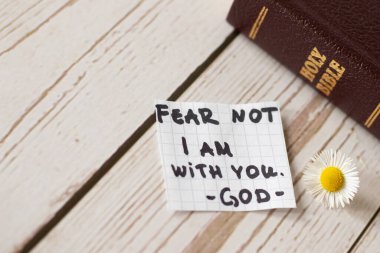 FEAR NOT
I AM
WITH YOU.
-GOD-
HOLY
BIBLE